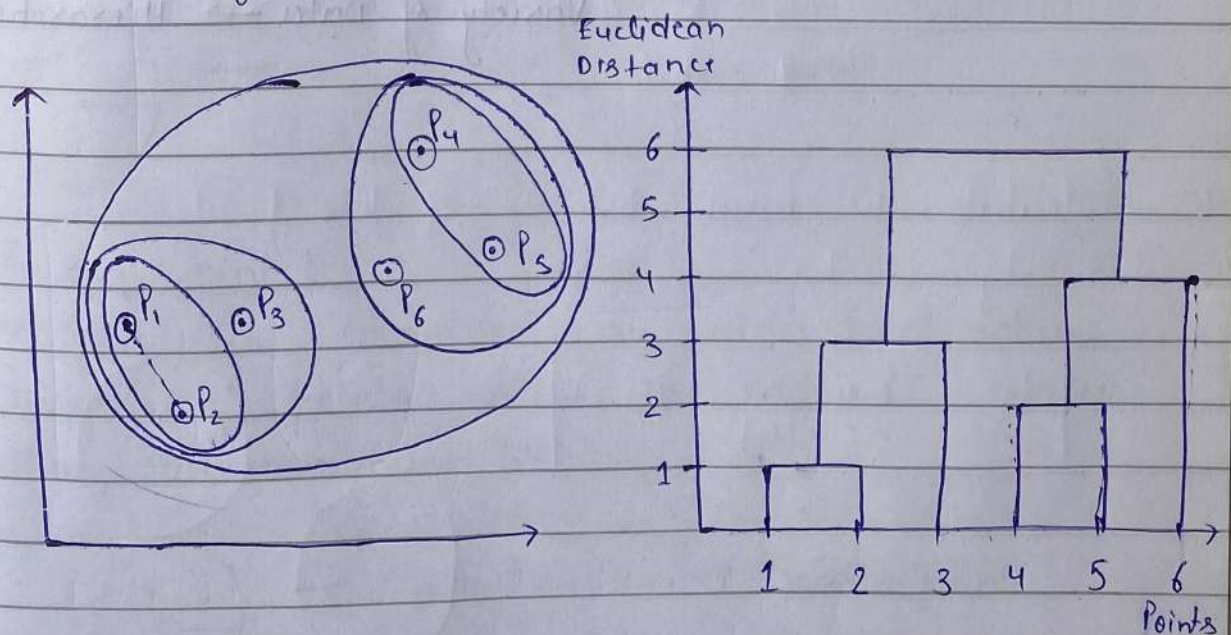 Euclidean
Distance
P4
P5
P6
P1
P3
P2
6
5
4
3
2
1
1 2 3 4 5 6
Points